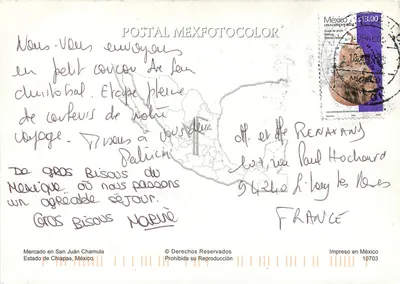 POSTAL MEXFOTOCOLOR
México
$13.00
Nous vous envoyons
un petit coucou de San
Christobal. Etape pleine
de couleurs de notre
voyage. Bisous à vous deux
Patricia
De gros bisous du
Mexique où nous passons
un agréable séjour.
Gros bisous
M. et Me RENAVANY
rue Paul Hochard
94240 L'Hay les Roses
FRANCE
Mercado en San Juan Chamula
Estado de Chiapas, México.
© Derechos Reservados
Prohibida su Reproducción
Impreso en México
10703